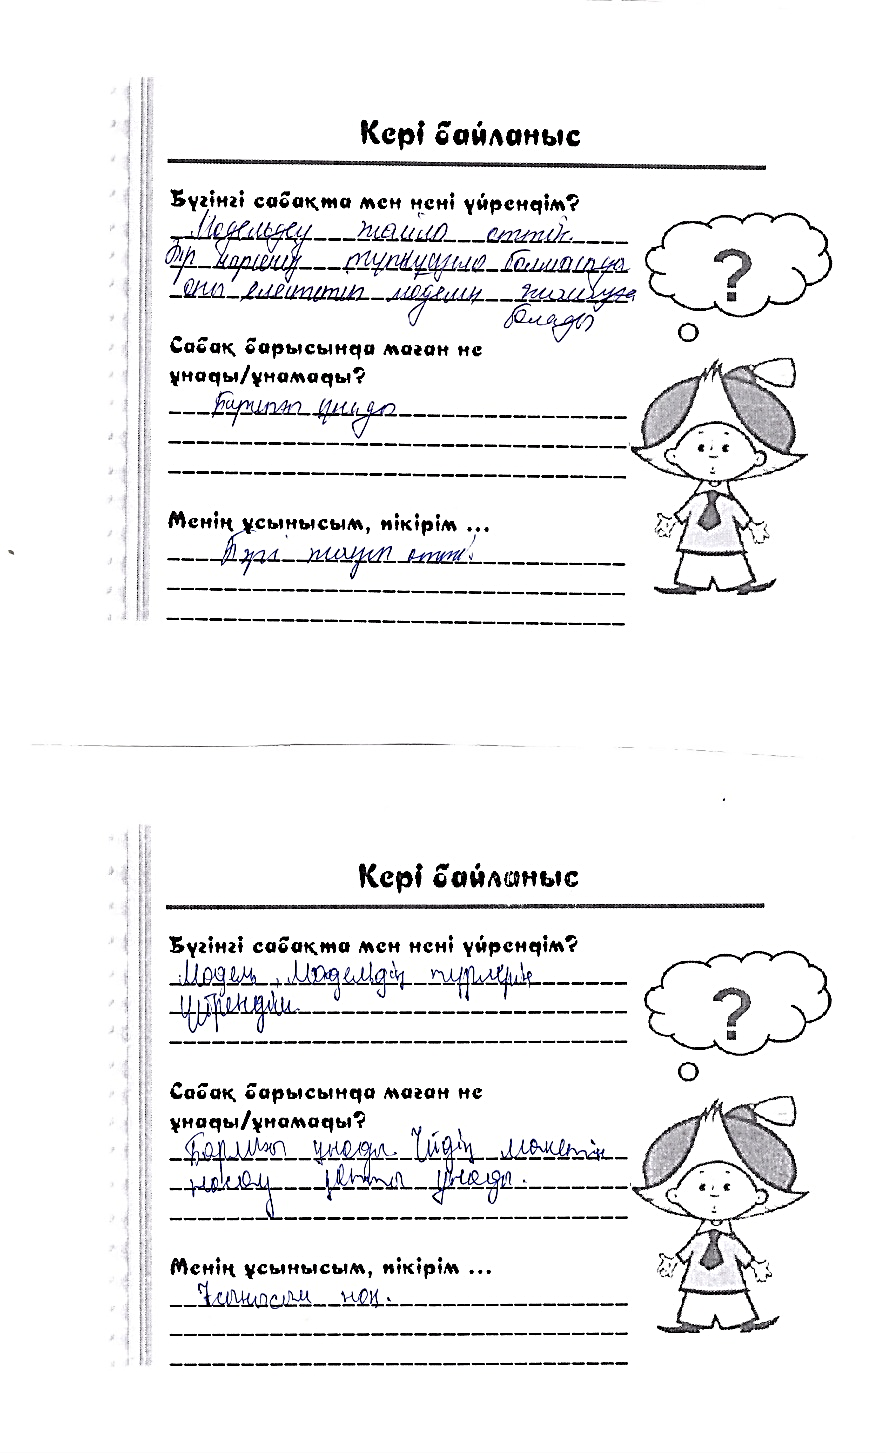 Кері байланыс
Бүгінгі сабақта мен нені үйрендім?
Модельдеу жайлы өттік.
Бір нәрсенің түпнұсқасы болмағанда
оны елестетіп моделін жасауға
болады
Сабақ барысында маған не
ұнады/ұнамады?
Барлығы ұнады
Менің ұсынысым, пікірім ...
Бәрі жақсы өтті!
?
Кері байланыс
Бүгінгі сабақта мен нені үйрендім?
Модель, Модельдің түрлерін
үйрендім.
Сабақ барысында маған не
ұнады/ұнамады?
Барлығы ұнады. Үйдің макетін
жасау қатты ұнады.
Менің ұсынысым, пікірім ...
Ұсынысым жоқ.
?